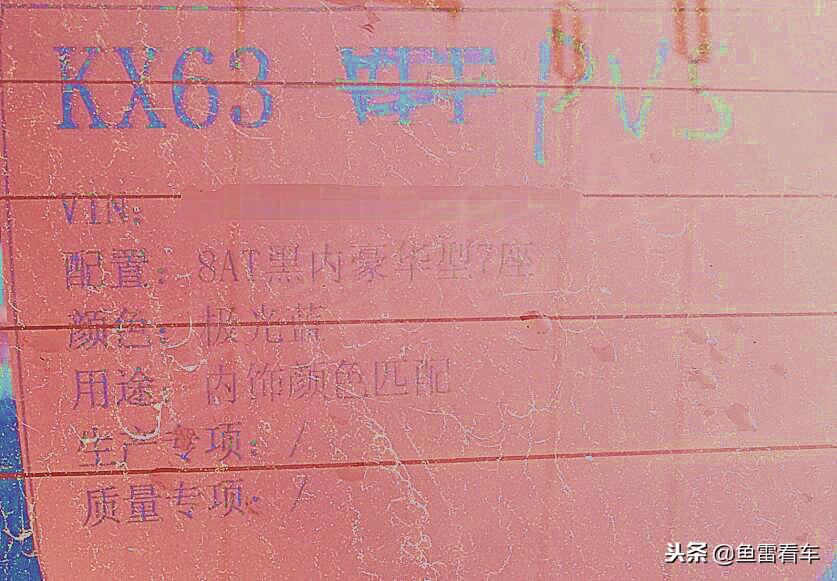 KX63 PVS
VIN:
配置: 8AT黑内豪华型7座
颜色: 极光蓝
用途: 内饰颜色匹配
生产专项: /
质量专项: /
头条 @鱼雷看车